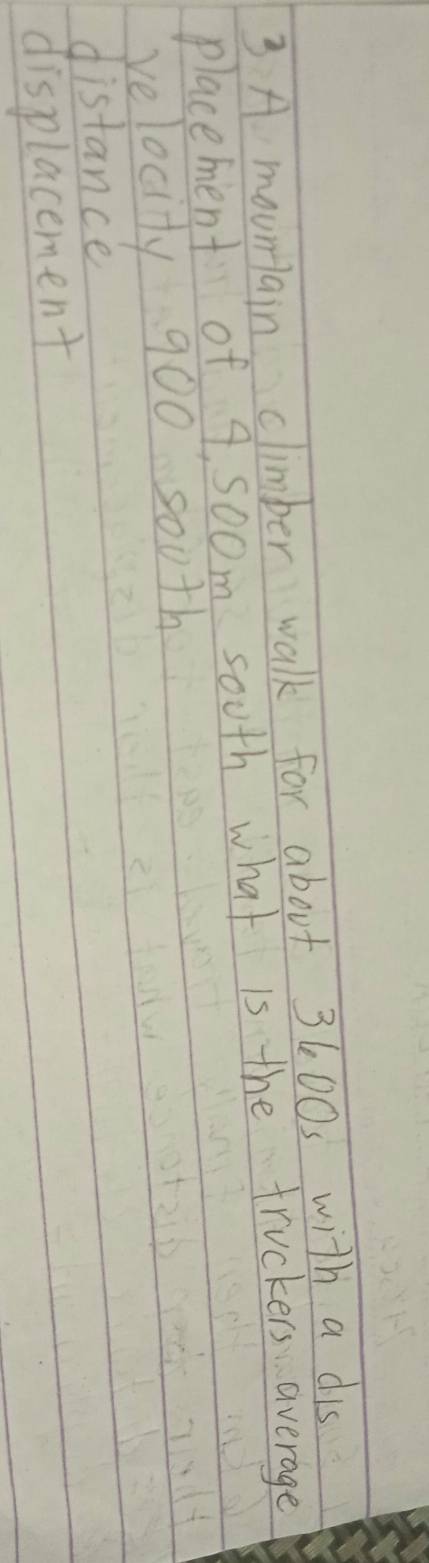 3 A mountain climber walk for about 3600s with a dis
placement of 4,500m south what is the truckers average
velocity 900 south
distance
displacement